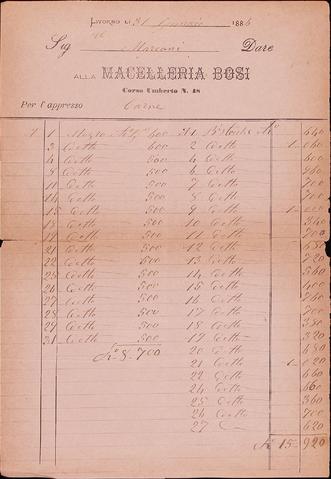 Livorno li 31 Gennaio 1886
Sig Marconi Dare
alla Macelleria Bosi
Corso Umberto N. 48
Per l'appresso Carne
1 600 640
3 Detto 600 2 Detto 1 060
4 Detto 600 4 Detto 600
8 Detto 500 6 Detto 960
Detto 500 7 Detto 700
14 Detto 500 8 Detto 700
15 Detto 500 9 Detto 1
Detto 500 10 Detto 340
19 Detto 500 11 Detto 700
21 Detto 500 12 Detto 680
22 Detto 500 13 Detto 720
23 Detto 500 14 Detto 560
26 Detto 500 15 Detto 400
27 Detto 500 16 Detto 760
28 Detto 500 17 Detto 700
29 Detto 500 18 Detto 350
31 Detto 500 19 Detto 320
8.700 20 Detto 680
21 Detto 1 020
22 Detto 660
24 Detto 660
25 Detto 360
26 Detto 700
27 620
15 920